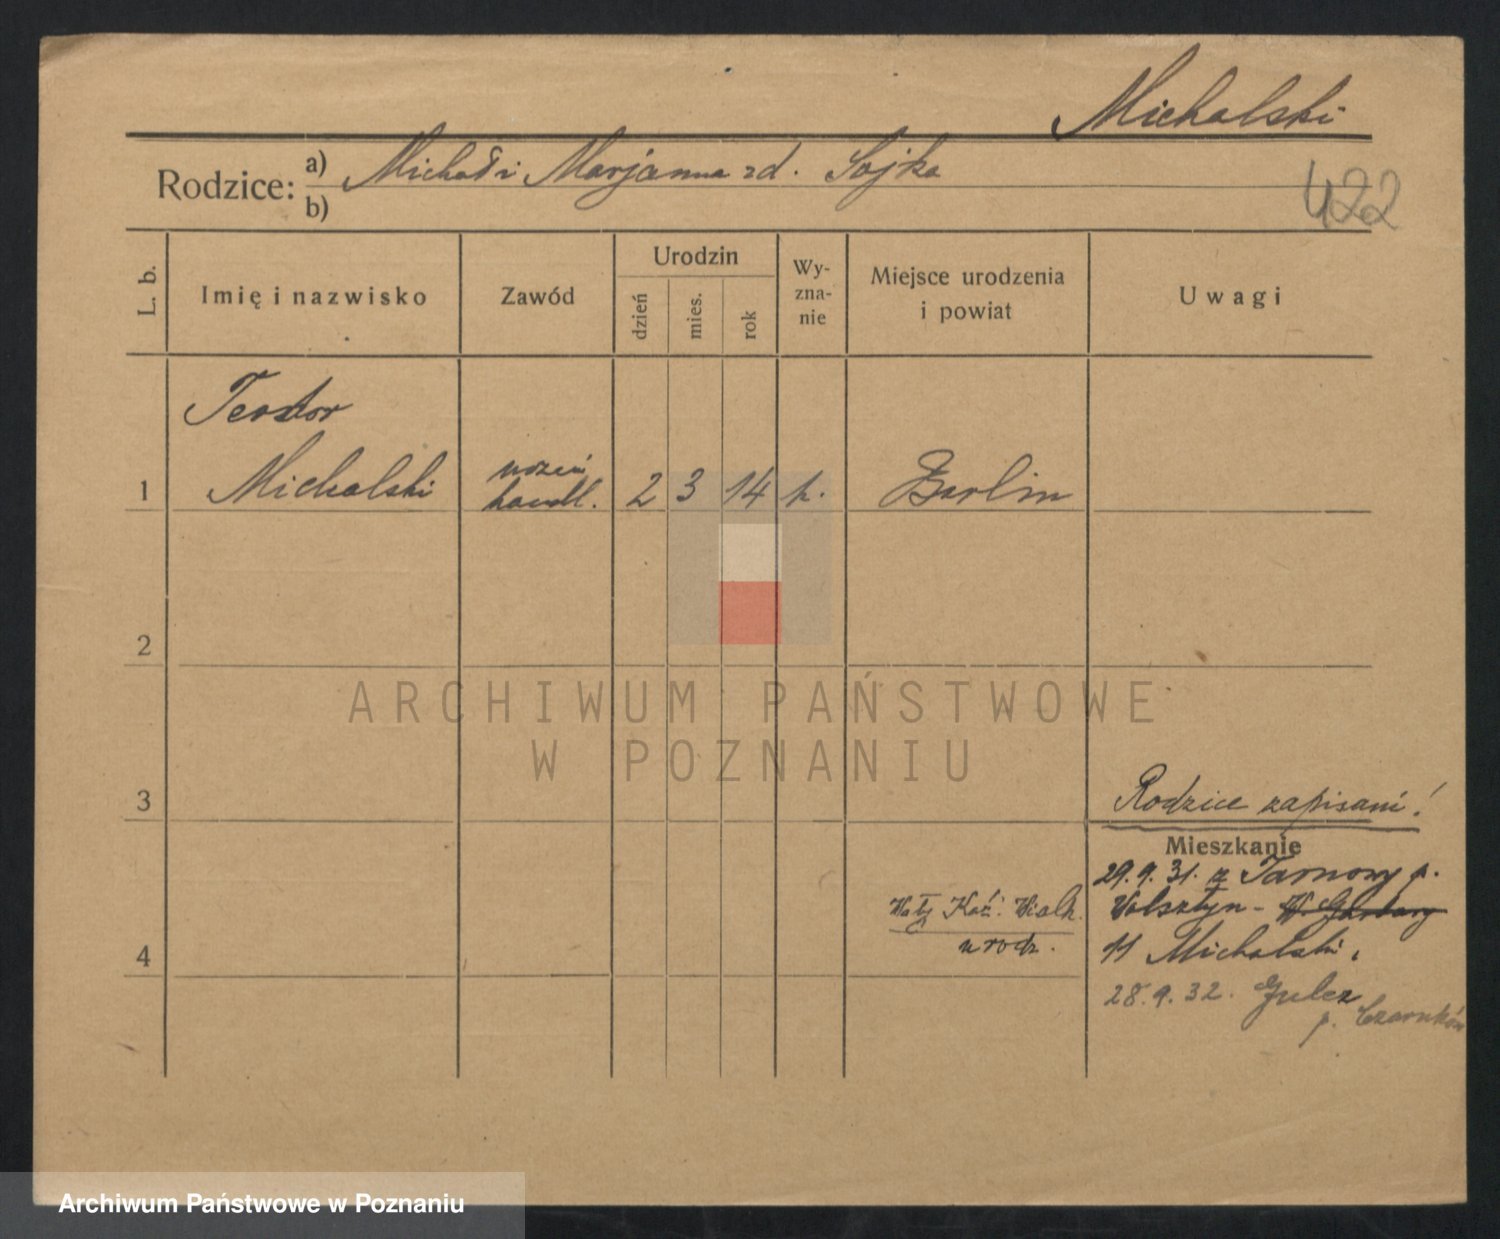 Michalski
Rodzice: a) Michał i Marjanna zd. Sojka
b)
422
L. b.
Imię i nazwisko
Zawód
Urodzin
dzień
mies.
rok
Wy-
zna-
nie
Miejsce urodzenia
i powiat
Uwagi
Teodor
1 Michalski
uczeń
handl.
2 3 14 k. Berlin
2
ARCHIWUM PAŃSTWOWE
W POZNANIU
3
Rodzice zapisani!
Mieszkanie
29.9.31. z Tarnowy p.
Wolsztyn - W. Garbary
11 Michalski,
28.9.32. Gulcz
p. Czarnków
urodz.
4
Archiwum Państwowe w Poznaniu